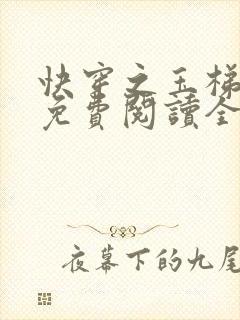 快穿之玉梯
免費閱讀全
夜幕下的九尾